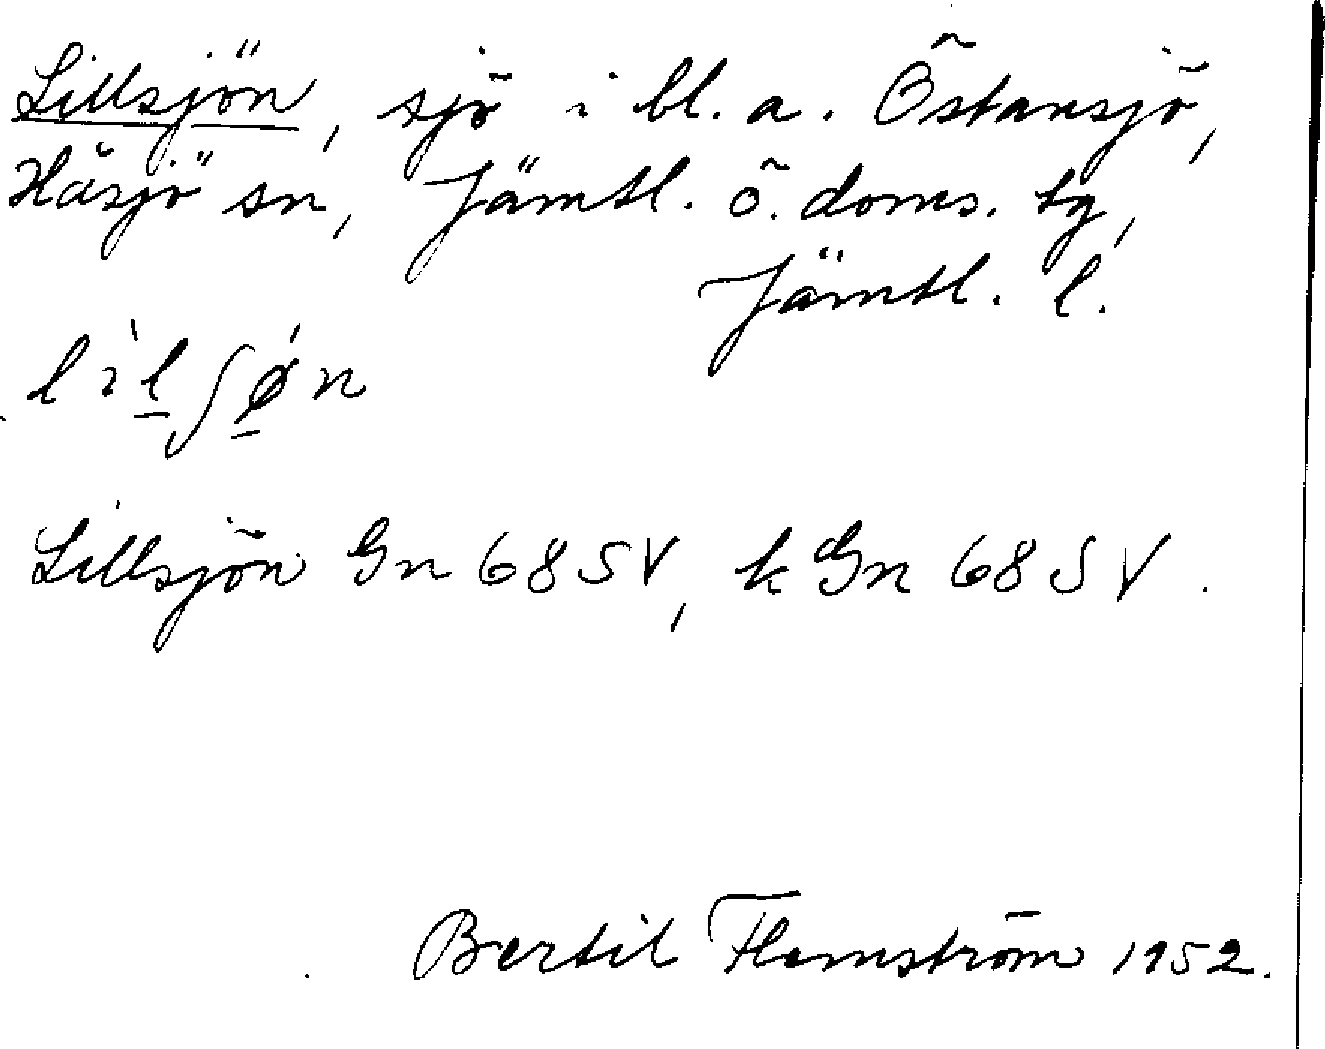 Lillsjön, sjö i bl. a. Östansjö,
Håsjö sn, Jämtl. ö. doms. tg,
Jämtl. l.
lìlʃǿn
Lillsjön Gn 68 SV, k Gn 68 SV.
Bertil Flemström 1952.